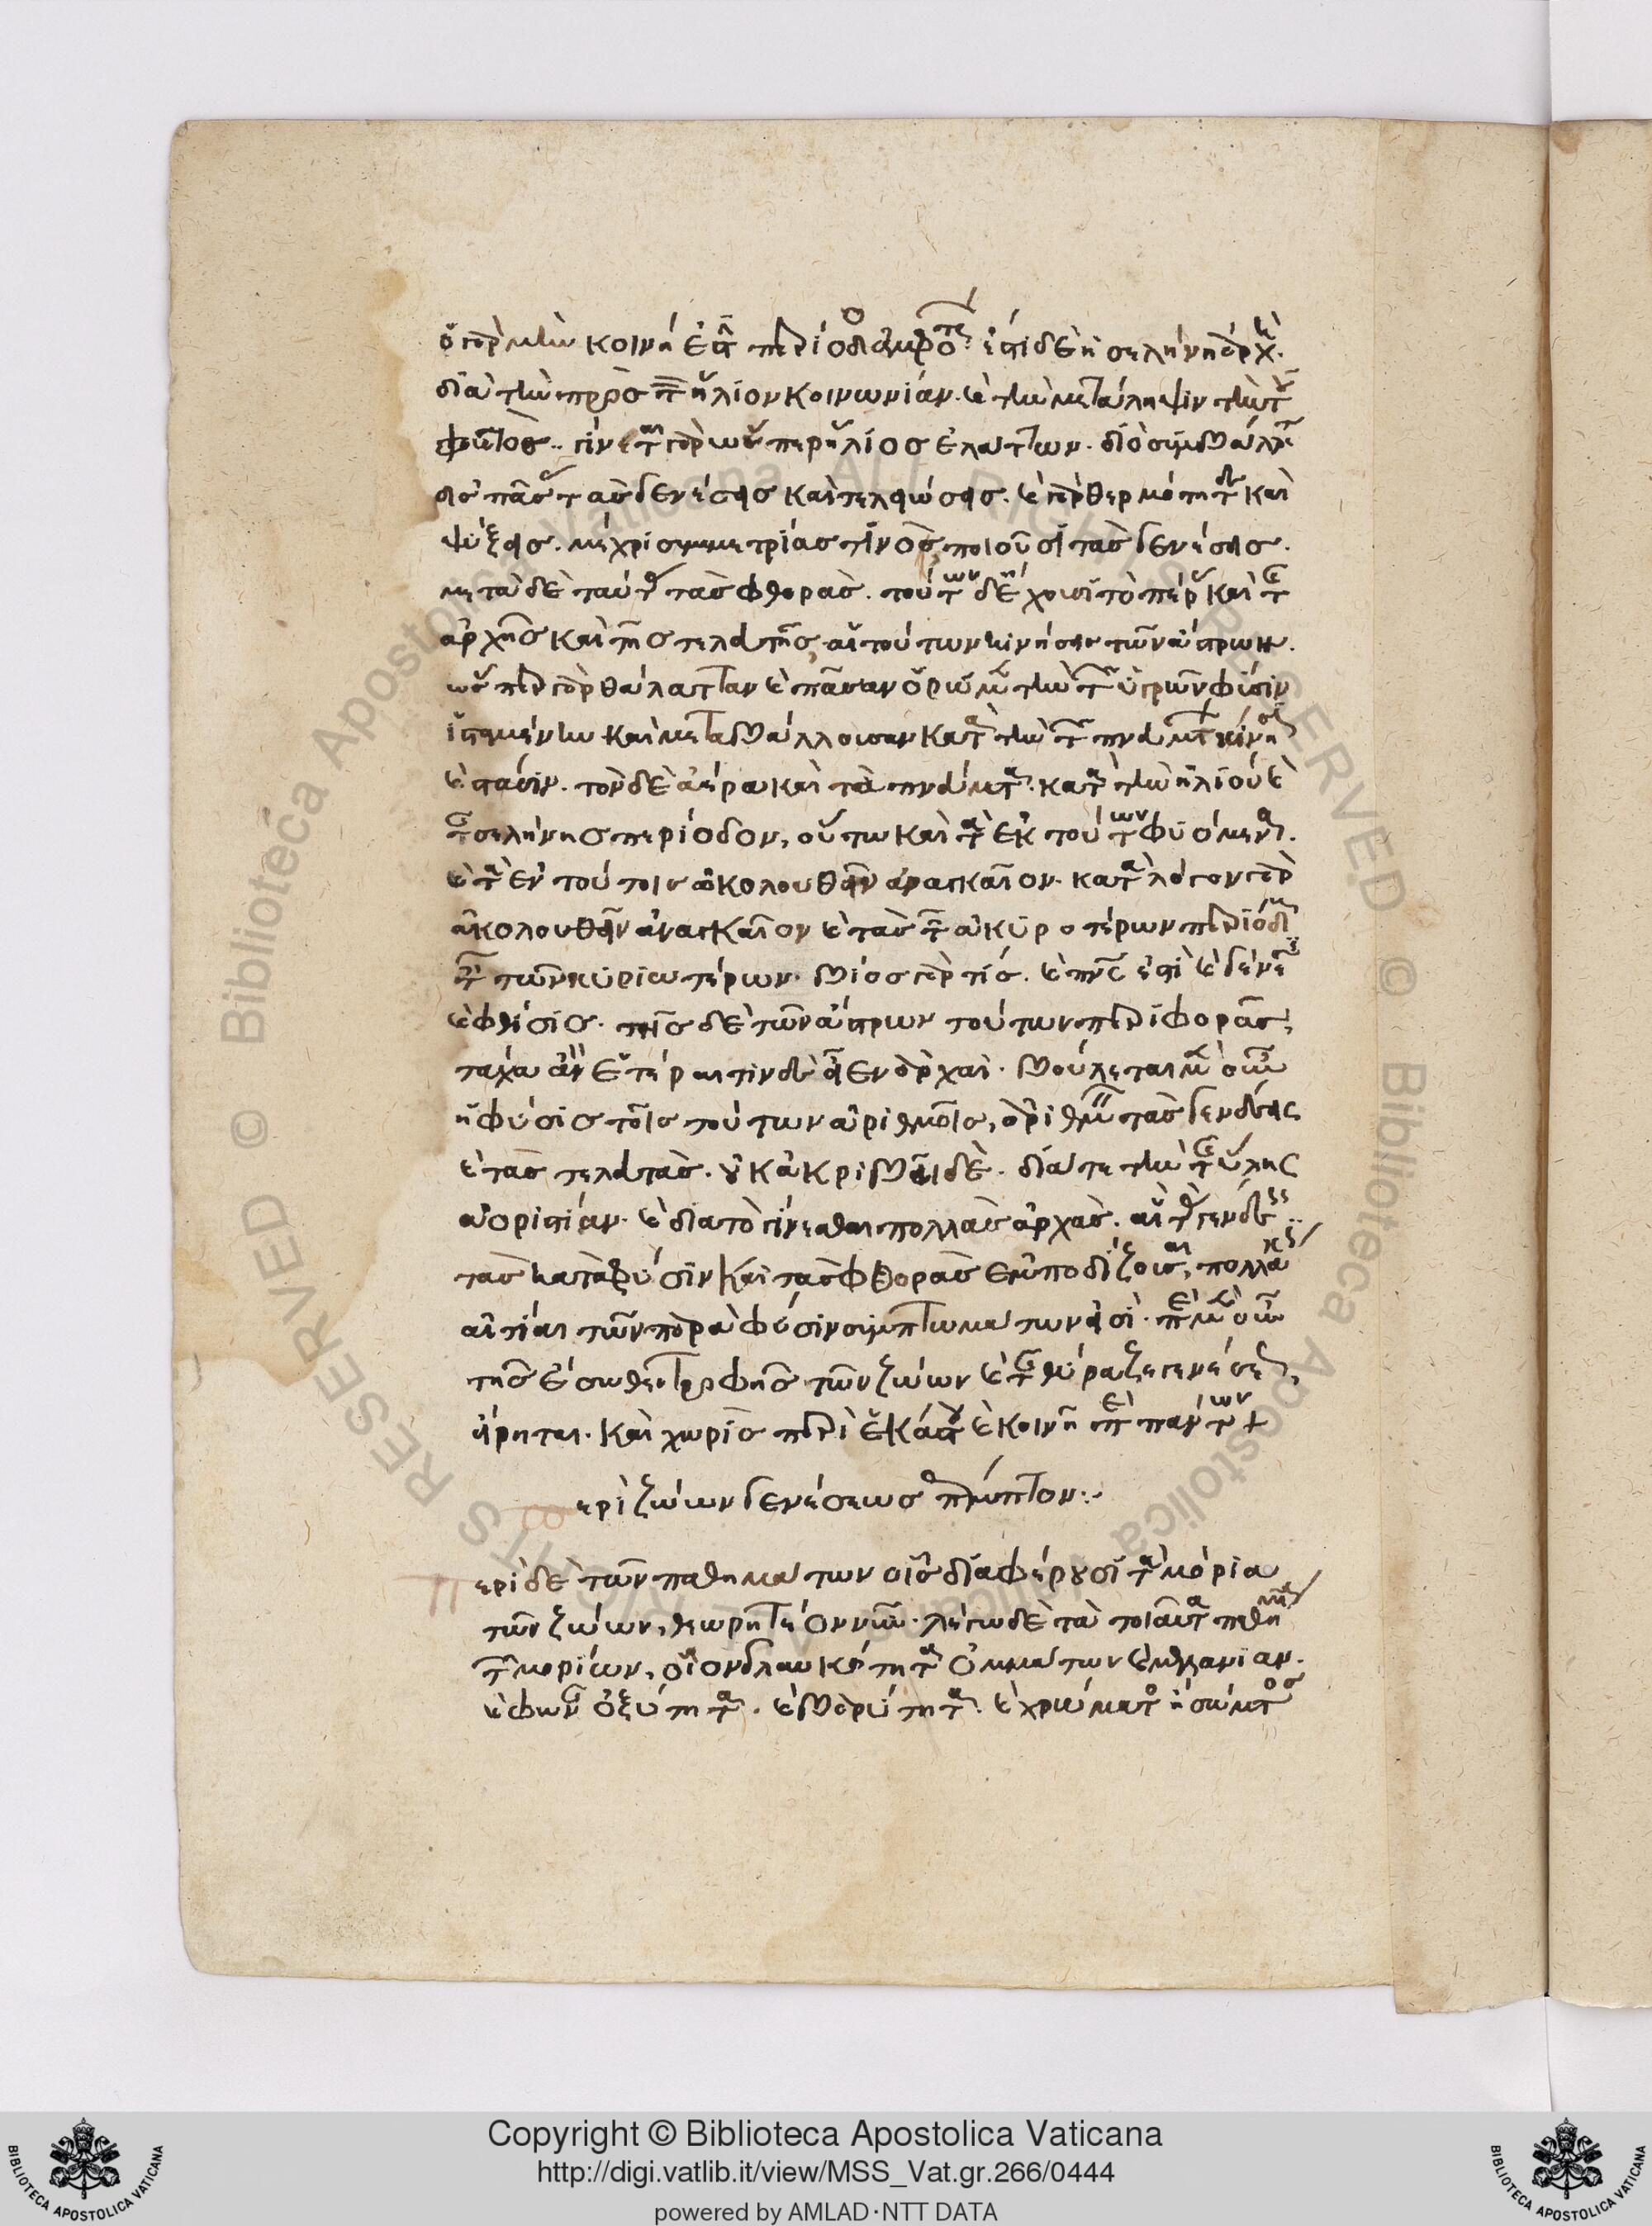 ὁ γὰρ μὴν κοινὴ ἐστὶ περίοδος ἀμφοτέρων. ἔστι δὲ ἡ σελήνη ἀρχὴ.
διὰ τὴν πρὸς τὸν ἥλιον κοινωνίαν. καὶ τὴν μετάληψιν τὴν τοῦ
φωτὸς. γίνεται γὰρ ὥσπερ ἥλιος ἐλάττων. διὸ συμβάλλεται
εἰς πάσας τὰς γενέσεις καὶ τελειώσεις. αἱ γὰρ θερμότητες καὶ
ψύξεις. μέχρι συμμετρίας τινὸς, ποιοῦσι τὰς γενέσεις.
μετὰ δὲ ταῦτα τὰς φθορὰς. τούτων δὲ ἔχουσι τὸ πέρας καὶ τῆς
ἀρχῆς καὶ τῆς τελευτῆς, αἱ τούτων κινήσεις τῶν ἄστρων.
ὥσπερ γὰρ θάλατταν καὶ πᾶσαν ὁρῶμεν τὴν τῶν ὑγρῶν φύσιν
ἱσταμένην καὶ μεταβάλλουσαν κατὰ τὴν τῶν πνευμάτων κίνησιν
καὶ στάσιν. τὸν δὲ ἀέρα καὶ τὰ πνεύματα. κατὰ τὴν ἡλίου καὶ
τῆς σελήνης περίοδον, οὕτω καὶ τὰ ἐκ τούτων φυόμενα.
καὶ τὰ ἐν τούτοις ἀκολουθεῖν ἀναγκαῖον. κατὰ λόγον γὰρ
ἀκολουθεῖν ἀναγκαῖον καὶ τὰς τῶν ἀκυροτέρων περιόδους
ταῖς τῶν κυριωτέρων. βίος γάρ τίς. καὶ πνεύματός ἐστι καὶ γένεσις
καὶ φθίσις. τῆς δὲ τῶν ἄστρων τούτων περιφορᾶς,
τάχα ἂν ἕτεραι τινὲς εἶεν ἀρχαί. βούλεται μὲν οὖν
ἡ φύσις τοῖς τούτων ἀριθμοῖς, ἀριθμεῖν τὰς γενέσεις
καὶ τὰς τελευτάς. οὐκ ἀκριβοῖ δὲ. διά τε τὴν τῆς ὕλης
ἀοριστίαν. καὶ διὰ τὸ γίνεσθαι πολλὰς ἀρχάς. αἳ τὰς γενέσεις
τὰς κατὰ φύσιν καὶ τὰς φθορὰς ἐμποδίζουσαι, πολλάκις
αἴτιαι τῶν παρὰ φύσιν συμπτωμάτων εἰσί. περὶ μὲν οὖν
τῆς ἔσωθεν τροφῆς τῶν ζώων καὶ τῆς θύραζε γενέσεως,
εἴρηται. καὶ χωρὶς περὶ ἑκάστου καὶ κοινῇ περὶ πάντων +
Περὶ ζώων γενέσεως πέμπτον:
Περὶ δὲ τῶν παθημάτων οἷς διαφέρουσι τὰ μόρια
τῶν ζώων, θεωρητέον νῦν. λέγω δὲ τὰ τοιαῦτα παθήματα
τῶν μορίων, οἷον γλαυκότητα ὀμμάτων καὶ μελανίαν.
καὶ φωνῆς ὀξύτητα. καὶ βαρύτητα. καὶ χρώματος ἢ σώματος